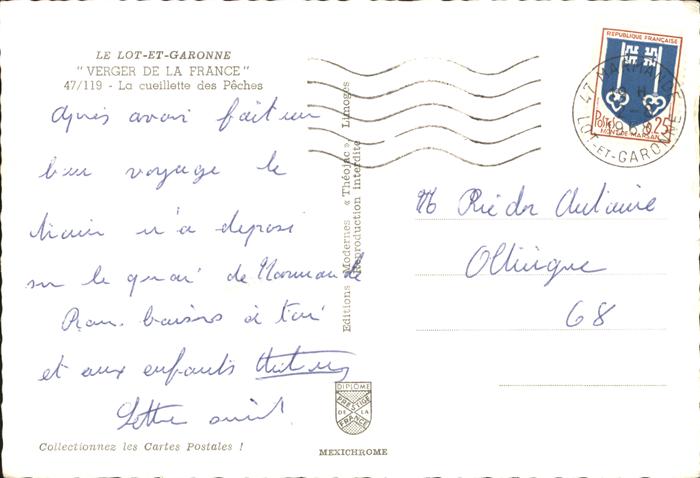 LE LOT-ET-GARONNE
"VERGER DE LA FRANCE"
47/119 - La cueillette des Pêches
Après avoir fait un
bon voyage le
train m'a déposé
sur le quai de Marmande
baisers à toi
et aux enfants
Lettre suit!
Collectionnez les Cartes Postales !
Editions Modernes « Théojac », Limoges
Reproduction interdite
DIPLOME
PRESTIGE
DE LA
FRANCE
MEXICHROME
REPUBLIQUE FRANÇAISE
Postes 0,25
MONT-DE-MARSAN
47 MARMANDE
LOT-ET-GARONNE
68